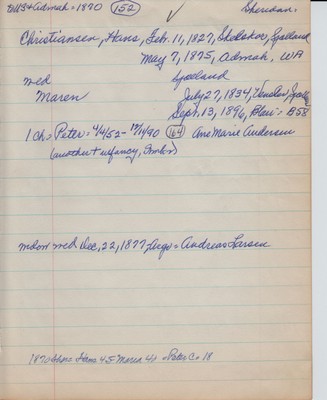 DUS + Admah = 1870 (152) Sheridan.
Christiansen, Hans, Feb. 11, 1827, Skelskor, Sjaeland
May 7, 1875, Admah, WA
med Sjaeland
Maren July 27, 1834, Venslev,
Sept. 13, 1896, Blair = B58
1 ch = Peter = 4/4/52 - 12/1/90 (164) Ane Marie Andersen
(another + infancy, Omken)
widow med Dec, 22, 1877, Argo = Andreas Larsen
1870 Hans 45 Maren 41 = Peter C = 18